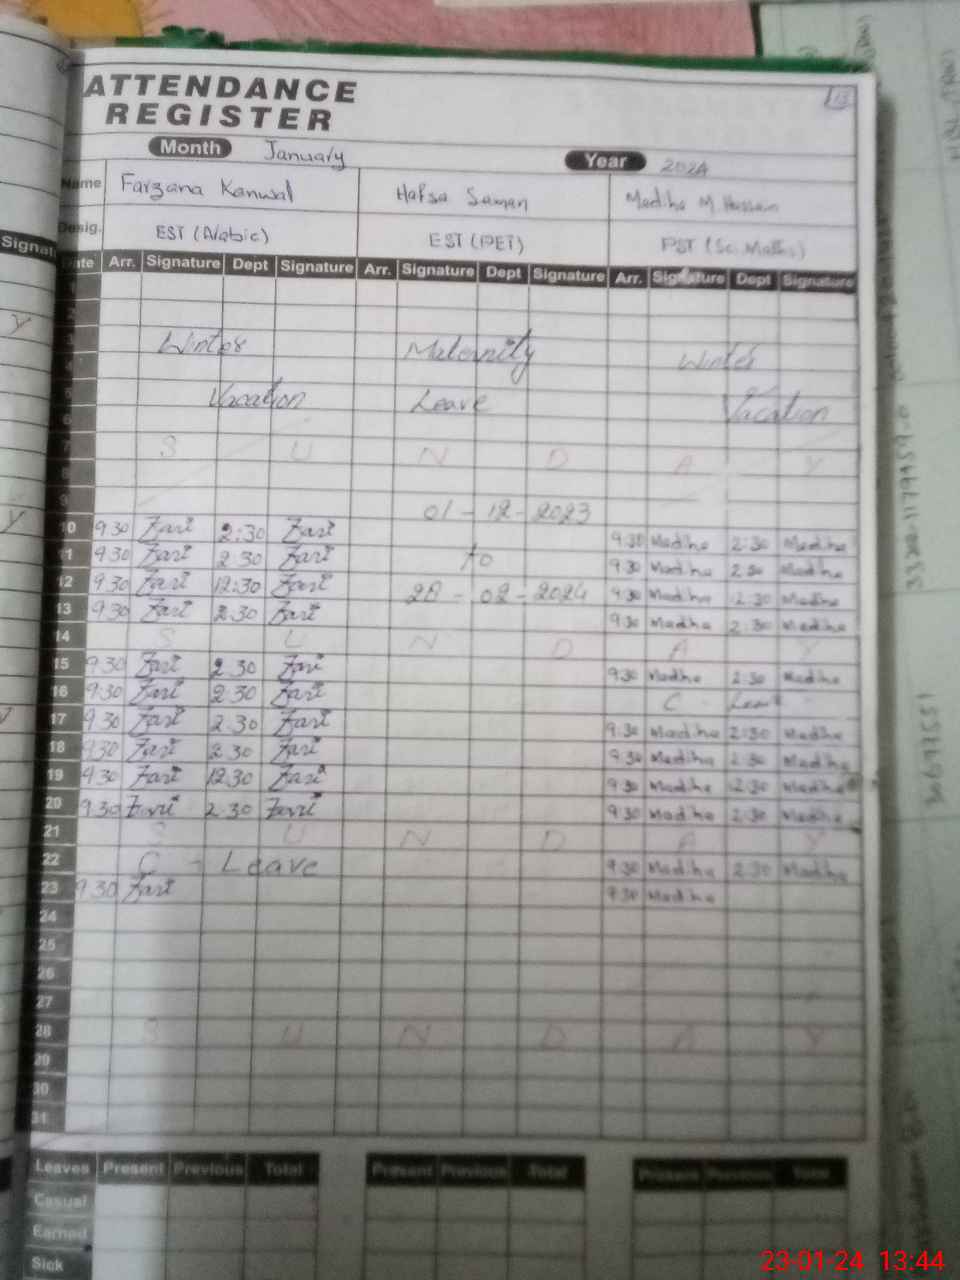 ATTENDANCE
REGISTER
13
Month January Year 2024
Name Farzana Kanwal Hafsa Saman Madiha M. Hussain
Desig. EST (Arabic) EST (PET) PST (Sc. Maths)
Date Arr. Signature Dept Signature Arr. Signature Dept Signature Arr. Signature Dept Signature
1
2
3 Winter Maternity Winter
4
5 Vacation Leave Vacation
6
7 S U N D A Y
8
9 01 - 12 - 2023
10 9:30 Fari 2:30 Fari 9:30 Madiha 2:30 Madiha
11 9:30 Fari 2:30 Fari to 9:30 Madiha 2:30 Madiha
12 9:30 Fari 12:30 Fari 28 - 02 - 2024 9:30 Madiha 12:30 Madiha
13 9:30 Fari 2:30 Fari 9:30 Madiha 2:30 Madiha
14 S U N D A Y
15 9:30 Fari 2:30 Fari 9:30 Madiha 2:30 Madiha
16 9:30 Fari 2:30 Fari C - Leave
17 9:30 Fari 2:30 Fari 9:30 Madiha 2:30 Madiha
18 9:30 Fari 2:30 Fari 9:30 Madiha 2:30 Madiha
19 9:30 Fari 12:30 Fari 9:30 Madiha 12:30 Madiha
20 9:30 Fari 2:30 Fari 9:30 Madiha 2:30 Madiha
21 S U N D A Y
22 C - Leave 9:30 Madiha 2:30 Madiha
23 9:30 Fari 9:30 Madiha
24
25
26
27
28 S U N D A Y
29
30
31
Leaves Present Previous Total Present Previous Total Present Previous Total
Casual
Earned
Sick
23-01-24 13:44